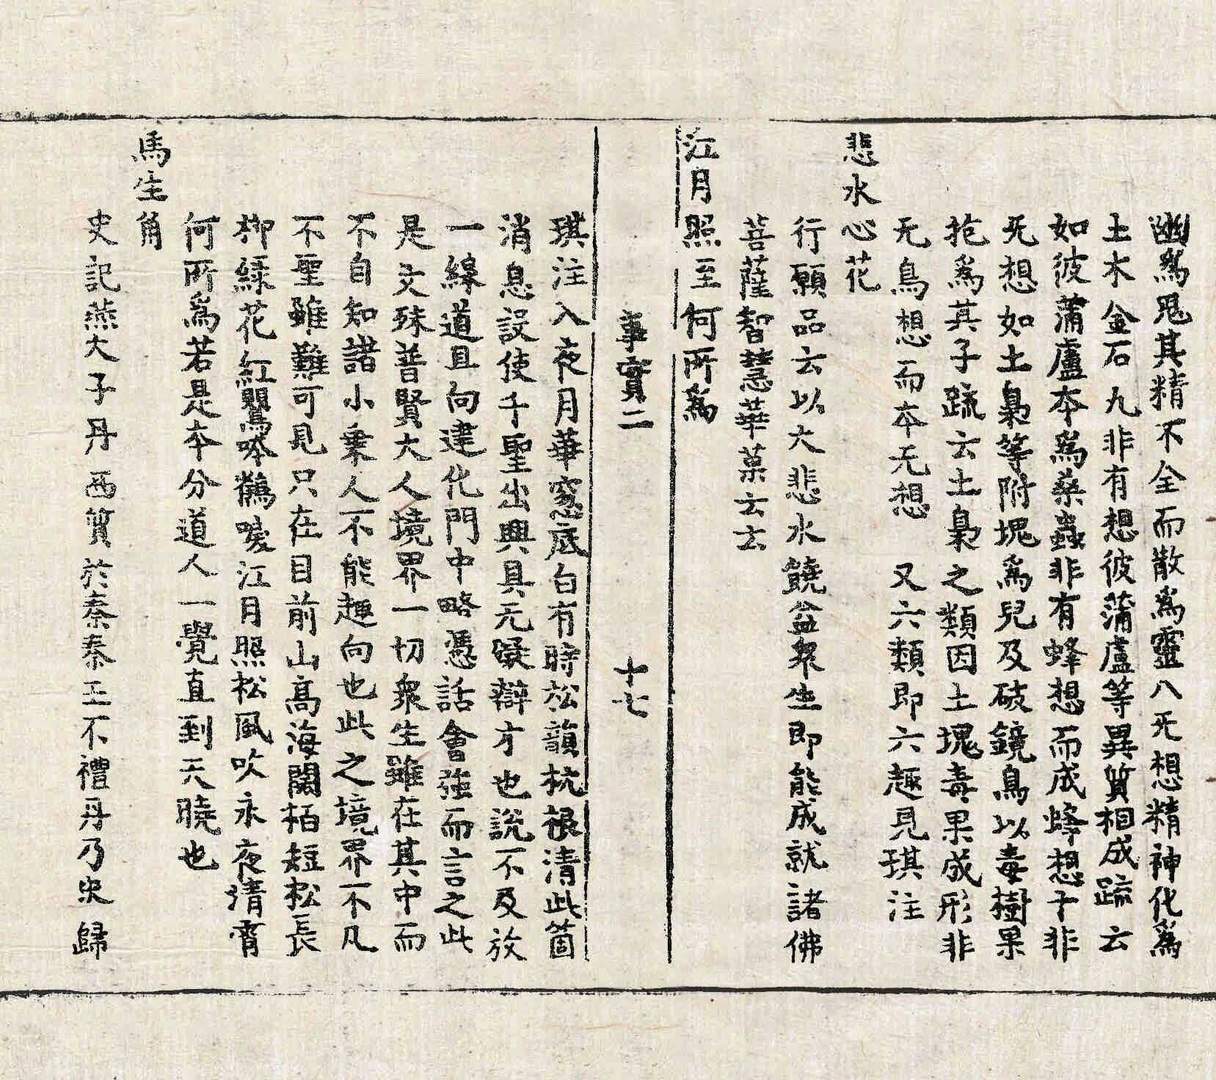 幽爲鬼其精不全而散爲靈八无想精神化爲
土木金石九非有想彼蒲盧等異質相成䟽云
如彼蒲盧本爲桒蟲非有蜂想而成蜂想十非
无想如土梟等附塊爲兒及破鏡鳥以毒樹果
抱爲其子䟽云土梟之類因土塊毒果成形非
无鳥想而本无想 又六類即六趣見琪注
悲水心花
行願品云以大悲水饒益衆生即能成就諸佛
菩薩智慧華菓云云
江月照至何所爲
事實二 十七
琪注入夜月華窓底白有時松韻枕根清此箇
消息設使千聖出興具无礙辯才也說不及放
一線道且向建化門中略憑話會强而言之此
是文殊普賢大人境界一切衆生雖在其中而
不自知諸小乗人不能趣向也此之境界不凡
不聖雖難可見只在目前山高海闊栢短松長
柳緑花紅鸎吟鶴唳江月照松風吹永夜清霄
何所爲若是本分道人一覺直到天曉也
馬生角
史記燕太子丹西質於秦秦王不禮丹乃求歸